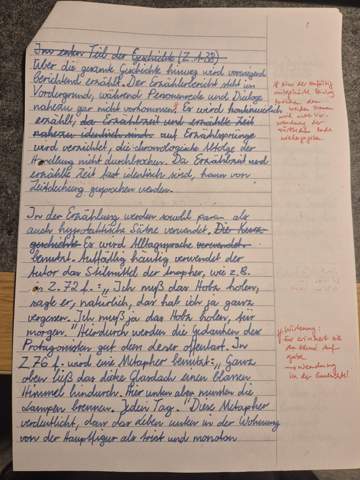 Im ersten Teil der Geschichte (Z. 1-38)
Über die gesamte Geschichte hinweg wird vorwiegend
berichtend erzählt. Der Erzählerbericht steht im
Vordergrund, während Personenrede und Dialoge
nahezu gar nicht vorkommen. Es wird kontinuierlich
erzählt, da Erzählzeit und erzählte Zeit
nahezu identisch sind auf Erzählsprünge
wird verzichtet, die chronologische Abfolge der
Handlung nicht durchbrochen. Da Erzählzeit und
erzählte Zeit fast identisch sind, kann von
Zeitdeckung gesprochen werden.
In der Erzählung werden sowohl para- als
auch hypotaktische Sätze verwendet. Die Kurz-
geschichte Es wird Alltagssprache verwendet
benutzt. Auffällig häufig verwendet der
Autor das Stilmittel der Anapher, wie z.B.
in Z. 72 f.: „Ich muß das Holz holen,
sagte er, natürlich, das hat ich ja ganz
vergessen. Ich muß ja das Holz holen, für
morgen." Hierdurch werden die Gedanken des
Protagonisten gut dem Leser offenbart. In
Z. 76 f. wird eine Metapher benutzt: „Ganz
oben ließ das dicke Glasdach einen blassen
Himmel hindurch. Hier unten aber mussten die
Lampen brennen. Jeden Tag." Diese Metapher
verdeutlicht, dass das Leben unten in der Wohnung
von der Hauptfigur als trist und monoton
Wirkung:
Er erinnert sich
an seine Auf-
gabe
→ Wendung
in der Geschichte!